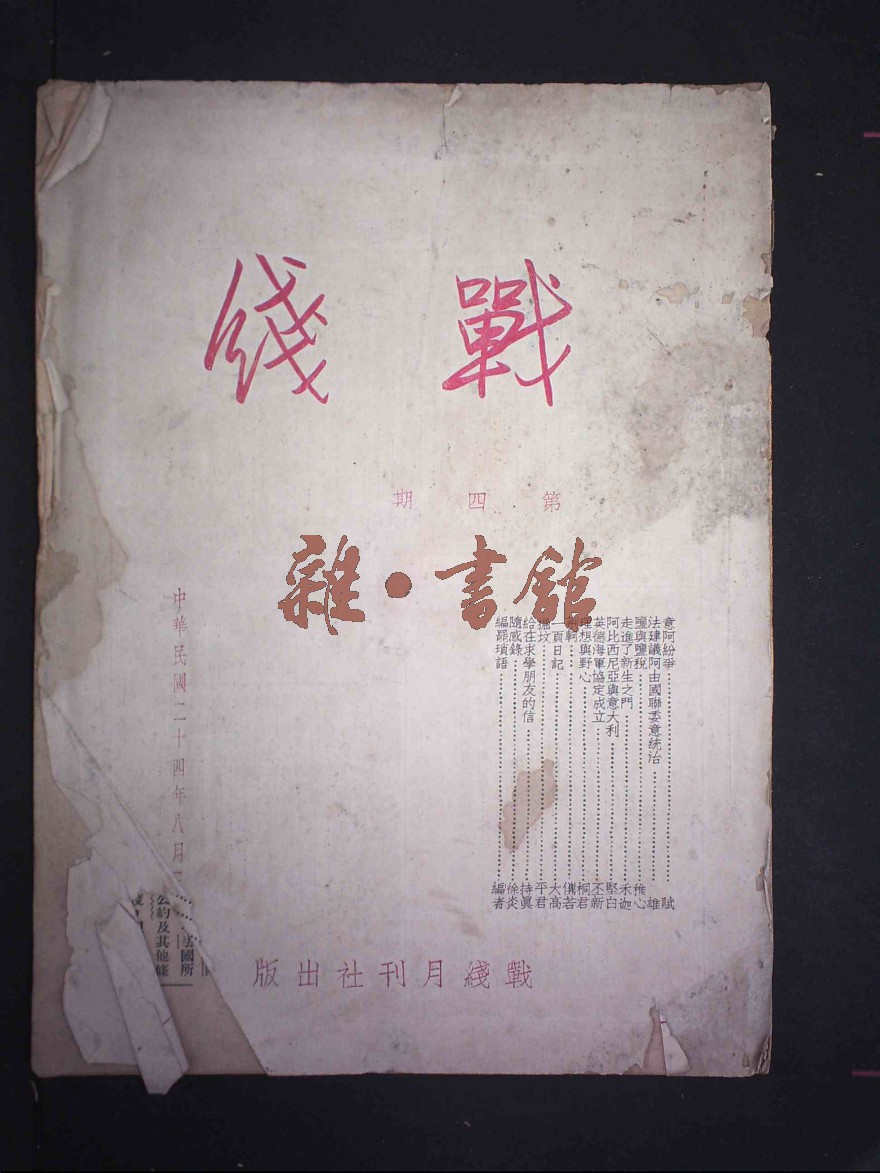 戰綫
第四期
雜·書館
意阿紛爭……賦
法建議阿由國聯委意統治……雄
鹽與鹽稅……稚心
走進了新生之門……禾迦
阿比西尼亞與意大利……堅白
英德海軍協定成立……丕新
理想與野心……桐君
荊軻……僕若
一頁日記……大高
掘坟……平君
給在求學朋友的信……持眞
隨感錄……徐炎
編罷瑣語……編者
中華民國二十四年八月
國所
公約及其他條
戰綫月刊社出版